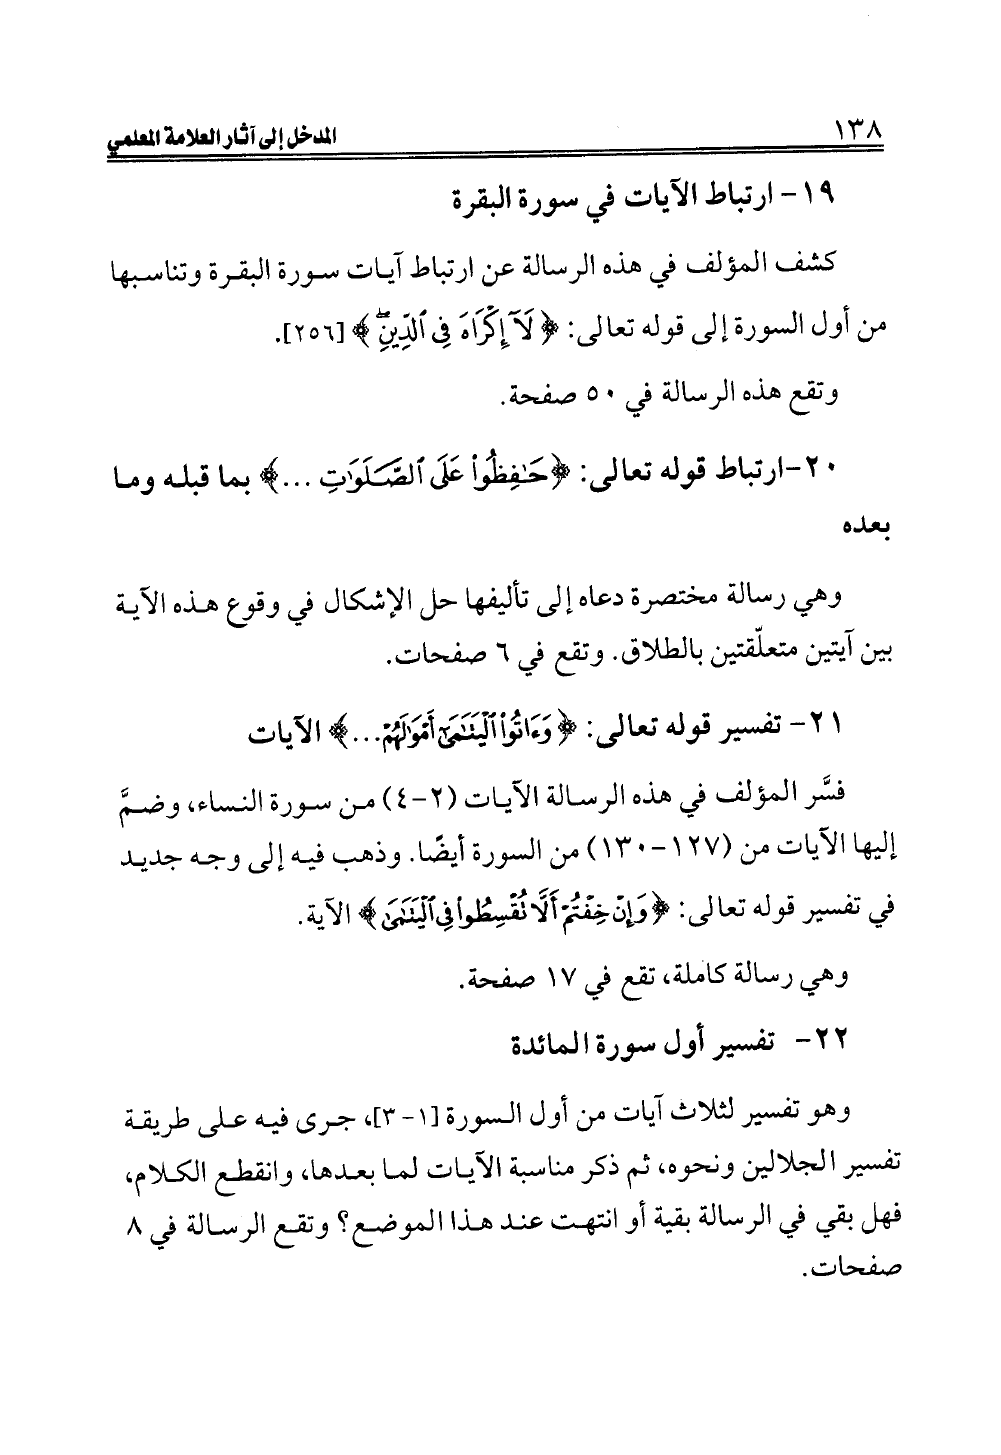 ١٣٨ المدخل إلى آثار العلامة المعلمي
١٩- ارتباط الآيات في سورة البقرة
كشف المؤلف في هذه الرسالة عن ارتباط آيات سورة البقرة وتناسبها
من أول السورة إلى قوله تعالى: ﴿لَآ إِكْرَاهَ فِى ٱلدِّينِۖ﴾ [٢٥٦].
وتقع هذه الرسالة في ٥٠ صفحة.
٢٠-ارتباط قوله تعالى: ﴿حَٰفِظُوا۟ عَلَى ٱلصَّلَوَٰتِ ...﴾ بما قبله وما
بعده
وهي رسالة مختصرة دعاه إلى تأليفها حل الإشكال في وقوع هذه الآية
بين آيتين متعلّقتين بالطلاق. وتقع في ٦ صفحات.
٢١- تفسير قوله تعالى: ﴿وَءَاتُوا۟ ٱلْيَتَٰمَىٰٓ أَمْوَٰلَهُمْ...﴾ الآيات
فسَّر المؤلف في هذه الرسالة الآيات (٢-٤) من سورة النساء، وضمَّ
إليها الآيات من (١٢٧-١٣٠) من السورة أيضًا. وذهب فيه إلى وجه جديد
في تفسير قوله تعالى: ﴿وَإِنْ خِفْتُمْ أَلَّا تُقْسِطُوا۟ فِى ٱلْيَتَٰمَىٰ﴾ الآية.
وهي رسالة كاملة، تقع في ١٧ صفحة.
٢٢- تفسير أول سورة المائدة
وهو تفسير لثلاث آيات من أول السورة [١-٣]، جرى فيه على طريقة
تفسير الجلالين ونحوه، ثم ذكر مناسبة الآيات لما بعدها، وانقطع الكلام،
فهل بقي في الرسالة بقية أو انتهت عند هذا الموضع؟ وتقع الرسالة في ٨
صفحات.